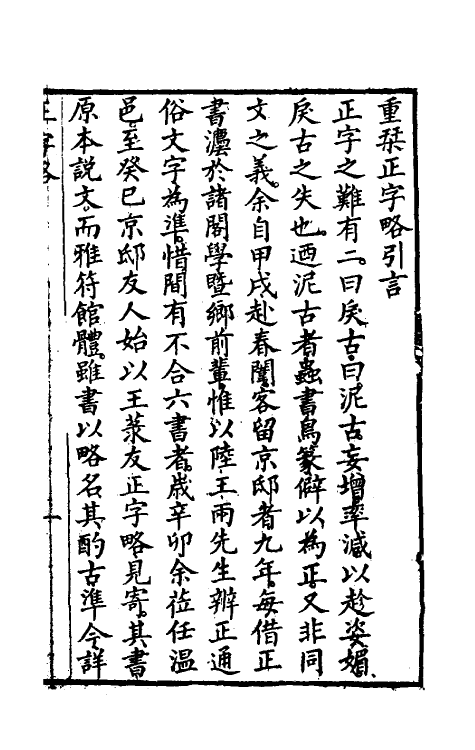 重栞正字略引言
正字之難有二。曰戾古。曰泥古。妄增率減以趁姿媚、
戾古之失也。迺泥古者蟲書鳥篆僻以為正。又非同
文之義。余自甲戌赴春闈客留京邸者九年。每借正
書灋於諸閣學暨鄉前輩惟以陸王兩先生辨正通
俗文字為準。惜間有不合六書者。歲辛卯余莅任溫
邑。至癸巳京邸友人始以王菉友正字略見寄。其書
原本說文。而雅符館體。雖書以略名其酌古準今詳
正字略
一